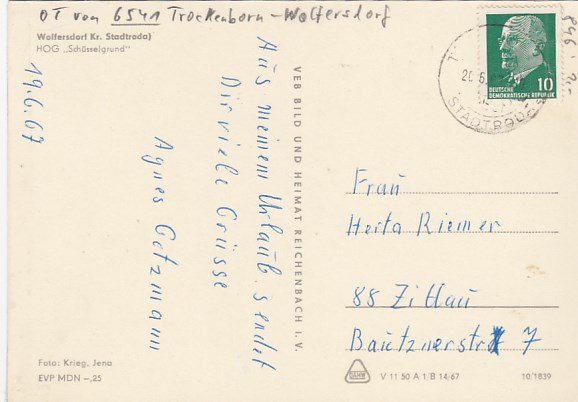 OT von 6541 Trockenborn-Wolfersdorf
Wolfersdorf Kr. Stadtroda)
HOG „Schüsselgrund"
19.6.67
Aus meinem Urlaub sendet
Dir viele Grüsse
Agnes Götzmann
Foto: Krieg, Jena
EVP MDN –,25
VEB BILD UND HEIMAT REICHENBACH I. V.
DEUTSCHE
DEMOKRATISCHE REPUBLIK
10
20.6.
STADTRODA
Frau
Herta Riemer
88 Zittau
Bautznerstr 7
V 11 50 A 1/B 14/67
10/1839